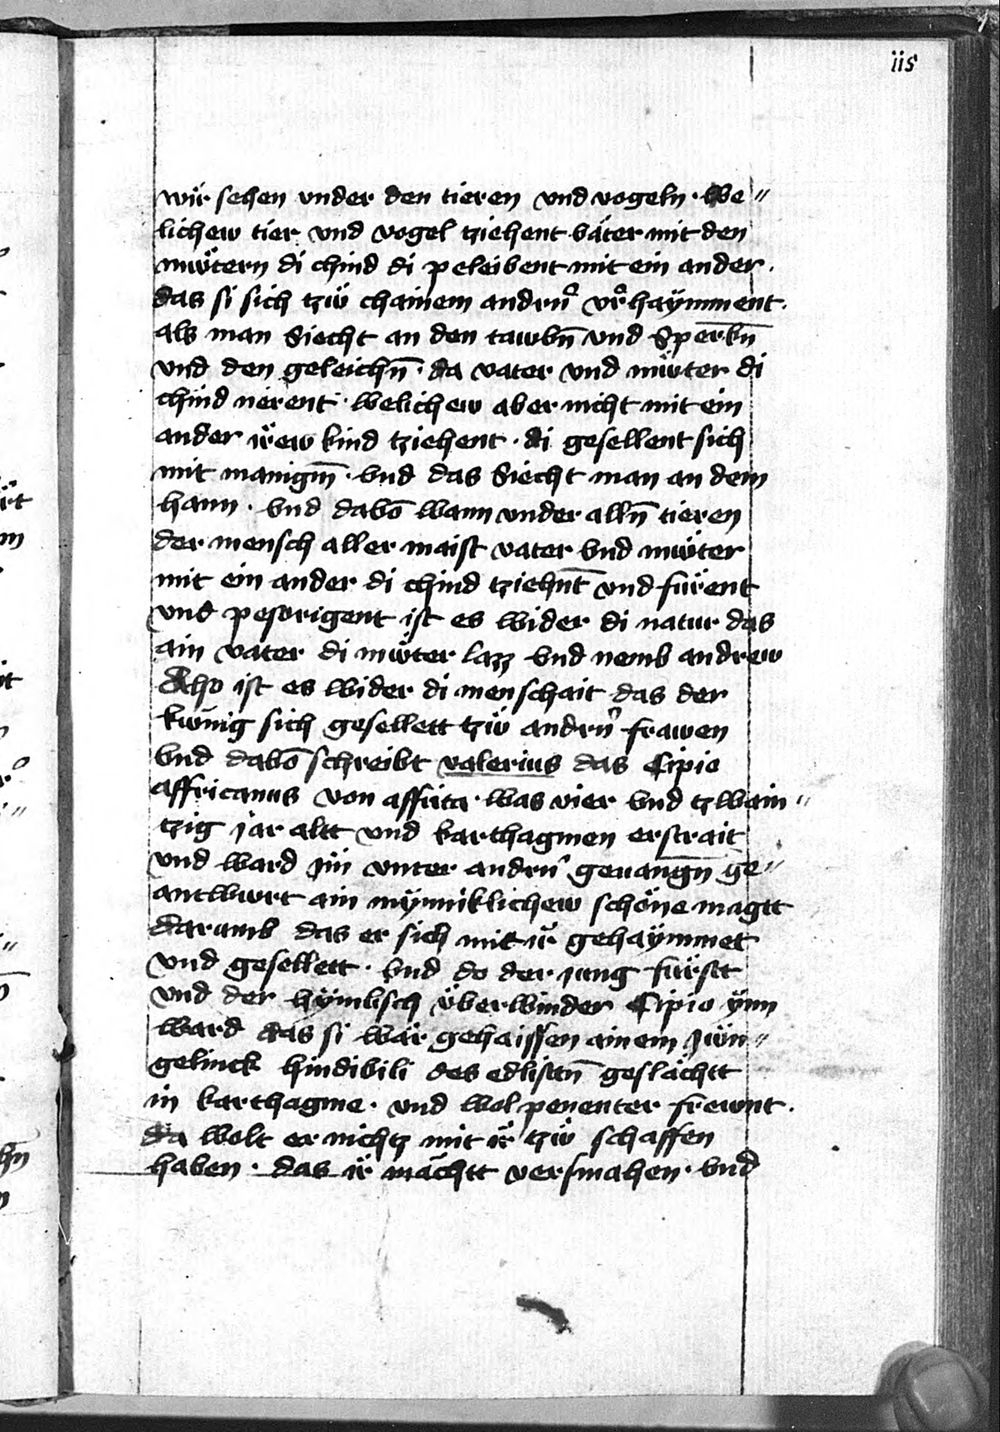 115
wir sehen vnder den tieren vnd vogeln · We〃
lichew tier vnd vogel tziehent väter mit den
müetern di chind di peleibent mit ein ander ·
das si sich tzů chainem andrn̄ v̓haÿmment ·
als man siecht an den tawbn̄ vnd Sperkn̄
vnd den geleichn̄ · da vater vnd můter di
chind nerent · Welichew aber nicht mit ein
ander irew kind tziehent · di gesellent sich
mit manigm̄ · vnd das siecht man an dem
hann · vnd dauō Wann vnder alln̄ tieren
der mensch aller maist vater vnd můter
mit ein ander di chind tziehn̄t vnd fürent
vnd pesorigent ist es wider di natur das
ain vater di můter lazz vnd nemb andrew
Also ist es wider di menschait das der
künig sich gesellett tzů andrn̄ frawen
vnd dauō schreibt valerius das Cipio
affricanus von affrica · was vier vnd tzwain〃
tzig jar altt vnd karthaginen erstrait
vnd ward im vnter andrn̄ geuangn̄ ge〃
antwurt ain mÿnniklichew schöne magtt
darumb das er sich mit ir gehaÿmmet
vnd gesellett · vnd do der jung fürstt
vnd der hÿmlisch überwinder Cipio ÿnn
ward das si wär gehaissen ainem jün〃
gelinck hindibili des edlistn̄ geslächtt
in karthagine · vnd wol penenter frewnt ·
da wolt er nichtz mit ir tzů schaffen
haben · das ir mächtt versmahen · vnd